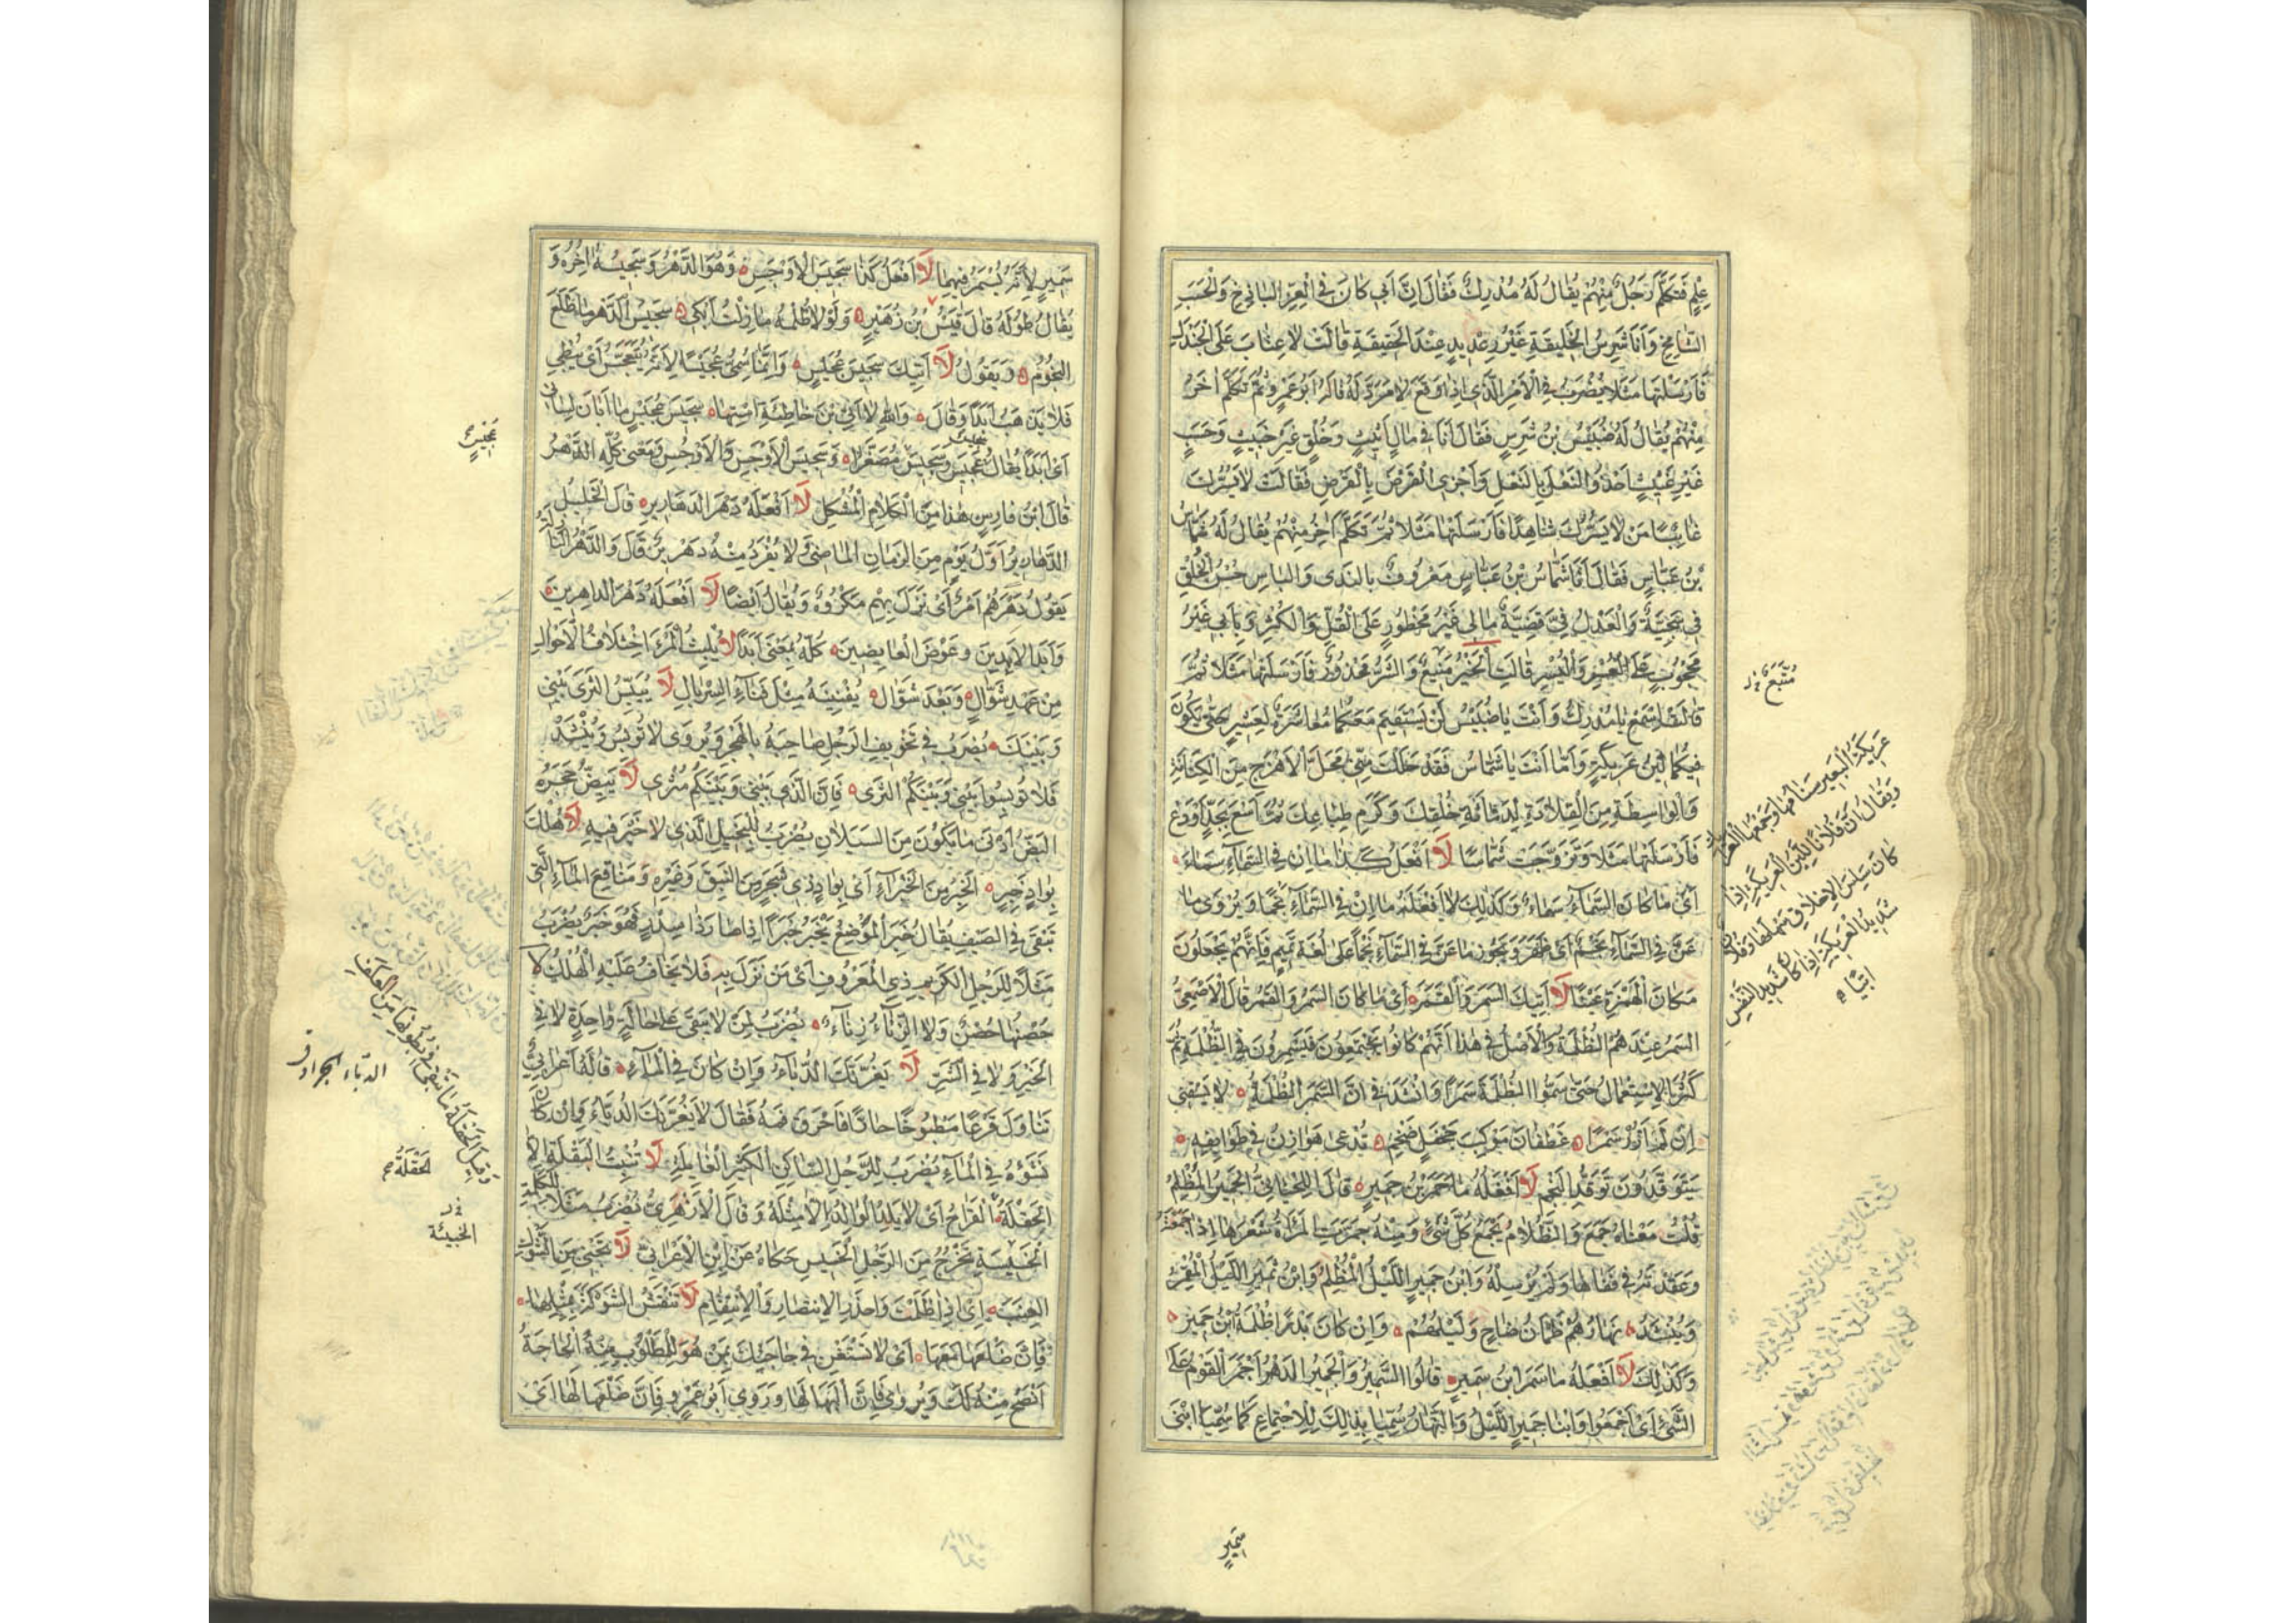 عِلْمٍ فَتَكَلَّمَ رَجُلٌ مِنْهُمْ يُقَالُ لَهُ مُدْرِكٌ فَقَالَ اِنَّ اَبِي كَانَ فِي الْعِزِّ الْبَاذِخِ وَالْحَسَبِ
الشَّامِخِ وَاَنَا شَرِسُ الْخَلِيقَةِ غَيْرُ رِعْدِيدٍ عِنْدَ الْحَقِيقَةِ قَالَتْ لَا عِتَابَ عَلَى الْجَنْدَلِ
فَاَرْسَلَتْهَا مَثَلًا يُضْرَبُ فِي الْاَمْرِ الَّذِي اِذَا وَقَعَ لَا مَرَدَّ لَهُ قَالَهُ اَبُو عَمْرٍو ثُمَّ تَكَلَّمَ اٰخَرُ
مِنْهُمْ يُقَالُ لَهُ ضَبِيسُ بْنُ شَرِسٍ فَقَالَ اَنَا فِي مَالٍ اَثِيثٍ وَخُلُقٍ غَيْرِ خَبِيثٍ وَحَسَبٍ
غَيْرِ غَثِيثٍ اَحْذُو النَّعْلَ بِالنَّعْلِ وَاَجْزِي الْقَرْضَ بِالْقَرْضِ فَقَالَتْ لَا يَسُرُّكَ
غَائِبًا مَنْ لَا يَسُرُّكَ شَاهِدًا فَاَرْسَلَتْهَا مَثَلًا ثُمَّ تَكَلَّمَ اٰخَرُ مِنْهُمْ يُقَالُ لَهُ شَمَّاسُ
بْنُ عَبَّاسٍ فَقَالَ اَنَا شَمَّاسُ بْنُ عَبَّاسٍ مَعْرُوفٌ بِالنَّدَى وَالْبَاسِ حُسْنُ الْخُلُقِ
فِيَّ سَجِيَّةٌ وَالْعَدْلُ فِيَّ قَضِيَّةٌ مَالِي غَيْرُ مَحْظُورٍ عَلَى الْقُلِّ وَالْكُثْرِ وَبَابِي غَيْرُ
مَحْجُوبٍ عَلَى الْعُسْرِ وَالْيُسْرِ قَالَتِ الْخَيْرُ مُتَّبَعٌ وَالشَّرُّ مَحْذُورٌ فَاَرْسَلَتْهَا مَثَلًا ثُمَّ
قَالَتِ اسْمَعْ يَا مُدْرِكُ وَاَنْتَ يَا ضَبِيسُ لَنْ يَسْتَقِيمَ مَعَكُمَا مُعَاشَرَةٌ لِعَشِيرٍ حَتَّى يَكُونَ
فِيكُمَا لِينُ عَرِيكَةٍ وَاَمَّا اَنْتَ يَا شَمَّاسُ فَقَدْ حَلَلْتَ مِنِّي مَحَلَّ الْاَهْزَعِ مِنَ الْكِنَانَةِ
وَالْوَاسِطَةِ مِنَ الْقِلَادَةِ لِدَمَاثَةِ خُلُقِكَ وَكَرَمِ طِبَاعِكَ ثُمَّ اسْعَ بِجَدٍّ اَوْ دَعْ
فَاَرْسَلَتْهَا مَثَلًا وَتَزَوَّجَتْ شَمَّاسًا لَا اَفْعَلُ كَذَا مَا اِنَّ فِي السَّمَاءِ سَمَاءً
اَيْ مَا كَانَ السَّمَاءُ سَمَاءً وَكَذٰلِكَ لَا اَفْعَلُهُ مَا اِنَّ فِي السَّمَاءِ نَجْمًا وَيُرْوَى مَا
عَنَّ فِي السَّمَاءِ نَجْمٌ اَيْ ظَهَرَ وَيَجُوزُ مَا عَنَّ فِي السَّمَاءِ نَجْمًا عَلَى لُغَةِ تَمِيمٍ فَاِنَّهُمْ يَجْعَلُونَ
مَكَانَ الْهَمْزَةِ عَيْنًا لَا اٰتِيكَ السَّمَرَ وَالْقَمَرَ اَيْ مَا كَانَ السَّمَرُ وَالْقَمَرُ قَالَ الْاَصْمَعِيُّ
السَّمَرُ عِنْدَهُمُ الظُّلْمَةُ وَالْاَصْلُ فِي هٰذَا اَنَّهُمْ كَانُوا يَجْتَمِعُونَ فَيَسْمُرُونَ فِي الظُّلْمَةِ ثُمَّ
كَثُرَ الْاِسْتِعْمَالُ حَتَّى سَمَّوُا الظُّلْمَةَ سَمَرًا وَاَنْشَدَ فِي اَنَّ السَّمَرَ الظُّلْمَةُ لَا يَسْقِنِي
اِنْ لَمْ اَزُرْ سَمَرًا غَطَفَانَ مَوْكِبَ جَحْفَلٍ ضَخْمٍ تُدْعَى هَوَازِنُ فِي طَوَايِفِهِ
يَتَوَقَّدُونَ تَوَقُّدَ النَّجْمِ لَا اَفْعَلُهُ مَا جَمَرَ ابْنُ جَمِيرٍ قَالَ اللِّحْيَانِيُّ الْجَمِيرُ الْمُظْلِمُ
قُلْتُ مَعْنَاهُ جَمَعَ وَالظَّلَامُ يَجْمَعُ كُلَّ شَيْءٍ وَمِنْهُ جَمَرَتِ الْمَرْاَةُ شَعْرَهَا اِذَا جَمَعَتْهُ
وَعَقَدَتْهُ فِي قَفَاهَا وَلَمْ تُرْسِلْهُ وَابْنُ جَمِيرٍ اللَّيْلُ الْمُظْلِمُ وَابْنُ ثَمِيرٍ اللَّيْلُ الْمُقْمِرُ
وَيُنْشَدُ نَهَارُهُمْ ظَمْاٰنُ ضَاحٍ وَلَيْلُهُمْ وَاِنْ كَانَ بَدْرًا ظُلْمَةُ ابْنِ جَمِيرِ
وَكَذٰلِكَ لَا اَفْعَلُهُ مَا سَمَرَ ابْنُ سَمِيرٍ قَالُوا السَّمِيرُ وَالْجَمِيرُ الدَّهْرُ اَجْمَرَ الْقَوْمُ عَلَى
الشَّيْءِ اَيْ اَجْمَعُوا وَابْنَا جَمِيرٍ اللَّيْلُ وَالنَّهَارُ سُمِّيَا بِذٰلِكَ لِلْاِجْتِمَاعِ كَمَا سُمِّيَا ابْنَيْ
سَمِيرٍ
مُتَّبَعٌ
عَرِيكَةُ الْبَعِيرِ سَنَامُهَا وَجَمْعُهَا الْعَرَائِكُ
وَيُقَالُ اَنَّ فُلَانًا لَيِّنُ الْعَرِيكَةِ اِذَا
كَانَ سَلِسَ الْاَخْلَاقِ سَهْلَهَا وَفُلَانٌ
شَدِيدُ الْعَرِيكَةِ اِذَا كَانَ شَدِيدَ النَّفْسِ
اَبِيًّا
سَمِيرٍ لِاَنَّهُ يُسْمَرُ فِيهِمَا لَا اَفْعَلُ كَذَا سَجِيسَ الْاَوْجَسِ وَهُوَ الدَّهْرُ وَسَجِيسُهُ اٰخِرُهُ وَ
يُقَالُ طُولُهُ قَالَ قَيْسُ بْنُ زُهَيْرٍ وَلَوْلَا ظُلْمُهُ مَا زِلْتُ اَبْكِي سَجِيسَ الدَّهْرِ مَا طَلَعَ
النُّجُومُ وَيَقُولُ لَا اٰتِيكَ سَجِيسَ عُجَيْسٍ وَاِنَّمَا سُمِّيَ عُجَيْسًا لِاَنَّهُ يَتَعَجَّسُ اَيْ يُبْطِي
فَلَا يَذْهَبُ اَبَدًا وَقَالَ وَاللهِ لَا اٰتِي بْنَ خَاطِئَةِ اسْتِهَا سَجِيسَ عُجَيْسٍ مَا اَبَانَ لِسَانِي
اَيْ اَبَدًا يُقَالُ عُجَيْسَ وَسَجِيسَ مُصَغَّرًا وَسَجِيسَ الْاَوْجَسِ وَالْاَوْجُسِ وَمَعْنَى كُلِّهِ الدَّهْرُ
قَالَ ابْنُ فَارِسٍ هٰذَا مِنَ الْكَلَامِ الْمُشْكِلِ لَا اَفْعَلُهُ دَهْرَ الدَّهَارِيرِ قَالَ الْخَلِيلُ
الدَّهَارِيرُ اَوَّلُ يَوْمٍ مِنَ الزَّمَانِ الْمَاضِي وَلَا يُفْرَدُ مِنْهُ دِهْرِيرٌ قَالَ وَالدَّهْرُ النَّازِلَةُ
يَقُولُ دَهَرَهُمْ اَمْرٌ اَيْ نَزَلَ بِهِمْ مَكْرُوهٌ وَيُقَالُ اَيْضًا لَا اَفْعَلُهُ دَهْرَ الدَّاهِرِينَ
وَاَبَدَ الْاٰبِدِينَ وَعَوْضَ الْعَايِضِينَ كُلُّهُ بِمَعْنَى اَبَدًا لَا يُلْبِثُ الْمَرْءَ اخْتِلَافُ الْاَحْوَالِ
مِنْ عَهْدِ شَوَّالٍ وَبَعْدَ شَوَّالِ يُفْنِيهِ مِثْلَ فَنَاءِ السِّرْبَالِ لَا يُيَبِّسِ الثَّرَى بَيْنِي
وَبَيْنَكَ يُضْرَبُ فِي تَخْوِيفِ الرَّجُلِ صَاحِبَهُ بِالْهَجْرِ وَيُرْوَى لَا تُوبِسْ وَيُنْشَدُ
فَلَا تُوبِسُوا بَيْنِي وَبَيْنَكُمُ الثَّرَى فَاِنَّ الَّذِي بَيْنِي وَبَيْنَكُمُ مُثْرِى لَا يَبِضُّ حَجَرُهُ
الْبَضُّ اَدْنَى مَا يَكُونُ مِنَ السَّيَلَانِ يُضْرَبُ لِلْبَخِيلِ الَّذِي لَا خَيْرَ فِيهِ لَا هُلْكَ
بِوَادٍ خَبِرٍ الْخَبِرُ مِنَ الْخَبْرَاءِ اَيْ بِوَادٍ ذِي شَجَرٍ مِنَ النَّبِقِ وَغَيْرِهِ وَمَنَاقِعِ الْمَاءِ الَّتِي
تَبْقَى فِي الصَّيْفِ يُقَالُ خَبِرَ الْمَوْضِعُ يَخْبَرُ خَبَرًا اِذَا صَارَ ذَا سِدْرٍ فَهُوَ خَبِرٌ يُضْرَبُ
مَثَلًا لِلرَّجُلِ الْكَرِيمِ ذِي الْمَعْرُوفِ اَيْ مَنْ نَزَلَ بِهِ فَلَا يُخَافُ عَلَيْهِ الْهُلْكُ لَا
حَصْنُهَا حَصْنٌ وَلَا الزِّنَاءُ زِنَاءٌ يُضْرَبُ لِمَنْ لَا يَبْقَى عَلَى حَالَةٍ وَاحِدَةٍ لَا فِي
الْخَيْرِ وَلَا فِي الشَّرِّ لَا يَغُرَّنَّكَ الدُّبَّاءُ وَاِنْ كَانَ فِي الْمَاءِ قَالَهُ اَعْرَابِيٌّ
تَنَاوَلَ قَرْعًا مَطْبُوخًا حَارًّا فَاَحْرَقَ فَمَهُ فَقَالَ لَا يَغُرَّنَّكَ الدُّبَّاءُ وَاِنْ كَانَ
نُشُوءُهُ فِي الْمَاءِ يُضْرَبُ لِلرَّجُلِ السَّاكِنِ الْكَثِيرِ الْغَايِلَةِ لَا تُنْبِتُ الْبَقْلَةَ اِلَّا
الْحَقْلَةُ الْقَرَاحُ اَيْ لَا يَلِدُ الْوَالِدُ اِلَّا مِثْلَهُ وَقَالَ الْاَزْهَرِيُّ يُضْرَبُ مَثَلًا لِلْكَلِمَةِ
الْخَسِيسَةِ تَخْرُجُ مِنَ الرَّجُلِ الْخَسِيسِ حَكَاهُ عَنِ ابْنِ الْاَعْرَابِيِّ لَا تَجْنِي مِنَ الشَّوْكِ
الْعِنَبَ اَيْ اِذَا ظَلَمْتَ فَاحْذَرِ الْاِنْتِصَارَ وَالْاِنْتِقَامَ لَا تَنْقُشِ الشَّوْكَةَ بِمِثْلِهَا
فَاِنَّ ضَلْعَهَا مَعَهَا اَيْ لَا تَسْتَعِنْ فِي حَاجَتِكَ بِمَنْ هُوَ لِلْمَطْلُوبِ مِنْهُ الْحَاجَةُ
اَنْصَحُ مِنْهُ لَكَ وَيُرْوَى فَاِنَّ اَلْبَهَا لَهَا وَرَوَى اَبُو عَمْرٍو فَاِنَّ ضَلْعَهَا لَهَا اَيْ
وَقِيلَ الْحَقْلَةُ مَا يَبْقَى فِي بُطُونِهَا مِنَ الْعَلَفِ
الدباء الجراد
الْحَقْلَةُ
الخبيثة